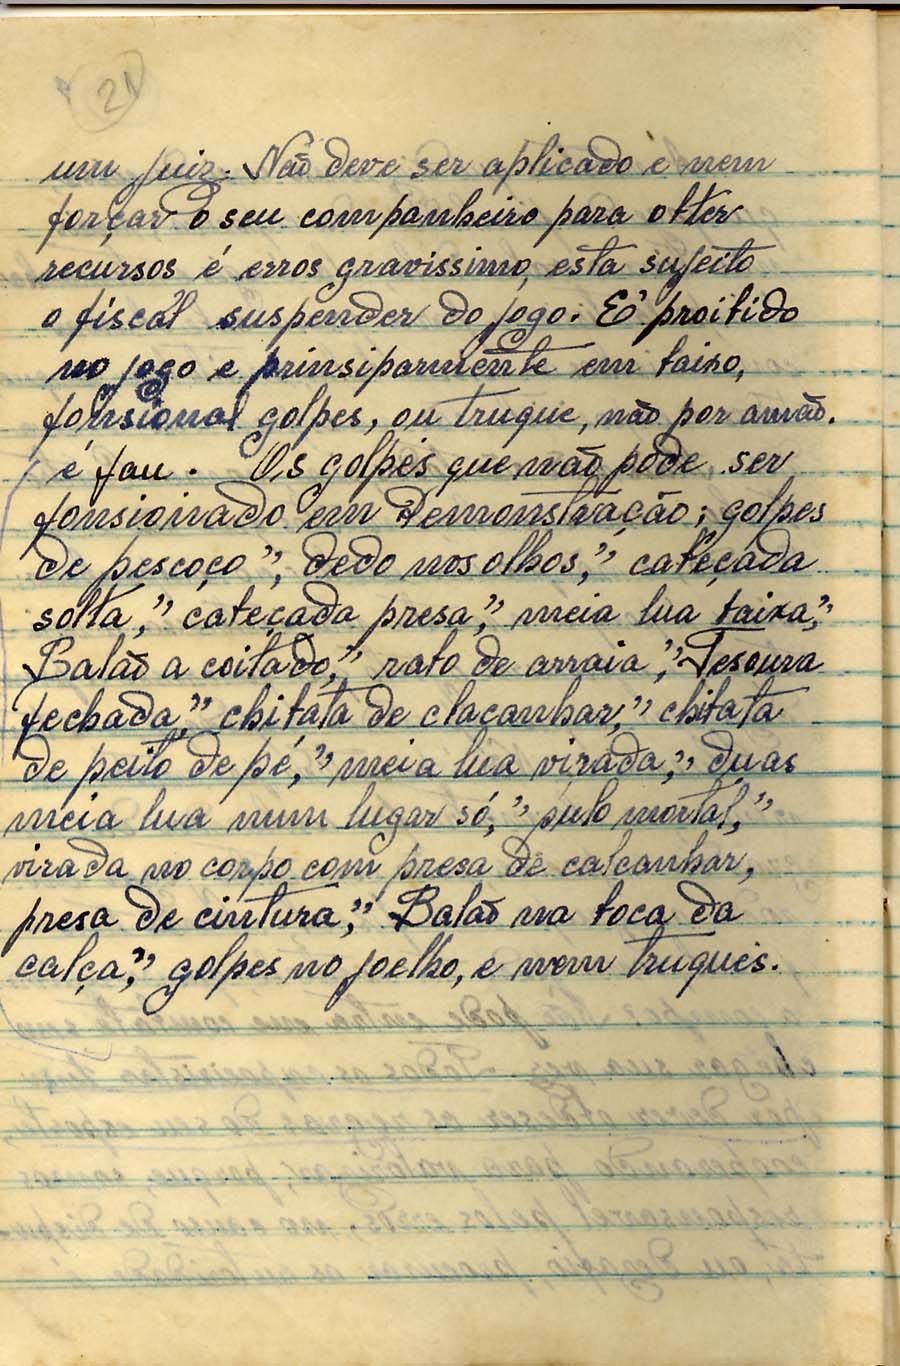 21
um juiz. Não deve ser aplicado e nem
forçar o seu companheiro para obter
recursos é erros gravissimo, esta sujeito
o fiscál suspender do jogo. É proibido
no jogo e prinsiparmente em baixo,
fonsional golpes, ou truque, não por amão.
é fau. Os golpes que não póde ser
fonsionado em demonstração; golpes
de pescoço", dedo nos olhos," cabeçada
solta," cabeçada presa," meia lua baixa,"
Balão a coitado," rabo de arraia", Tesoura
fechada," chibata de clacanhar," chibata
de peito de pé," meia lua virada," duas
meia lua num lugar só," pulo mortal,"
virada no corpo com presa de calcanhar,
presa de cintura," Balão na boca da
calça," golpes no joelho, e nem truques.